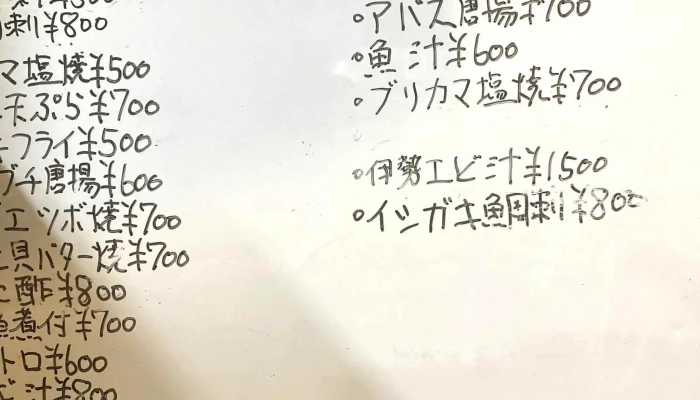 刺¥800
マ塩焼¥500
天ぷら¥700
フライ¥500
ブチ唐揚¥600
エツボ焼¥700
貝バター焼¥700
酢¥800
魚煮付¥700
トロ¥600
ビ汁¥800
。アバス唐揚¥700
。魚汁¥600
。ブリカマ塩焼¥700
。伊勢エビ汁¥1500
。イシガキ鯛刺¥800